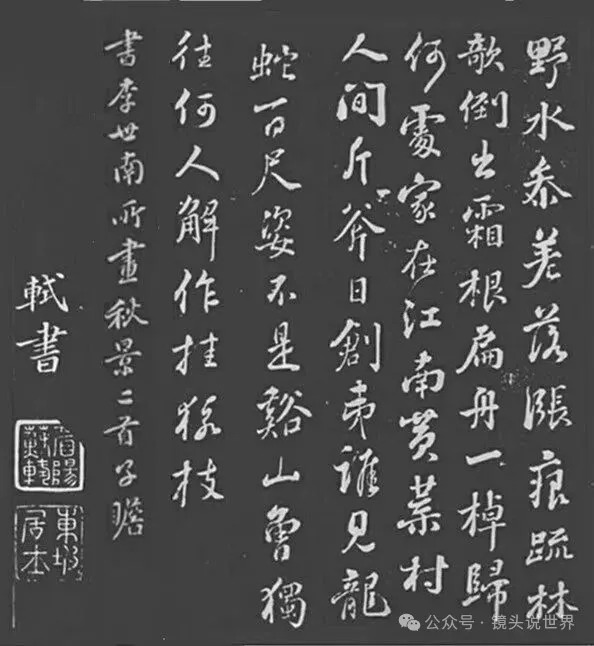 野水參差落漲痕疏林
欹倒出霜根扁舟一棹歸
何處家在江南黃葉村
人間斤斧日創夷誰見龍
蛇百尺姿不是谿山曾獨
往何人解作挂猿枝
書李世南所畫秋景二首子瞻
軾書
眉陽蘇軾
東坡居士
公众号·镜头说世界